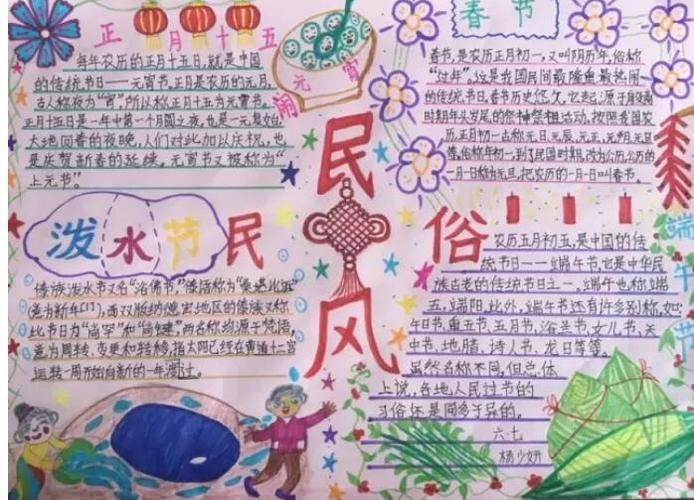 正月十五
每年农历的正月十五日,就是中国
的传统节日——元宵节。正月是农历的元月,
古人称夜为“宵”,所以称正月十五为元宵节。
正月十五日是一年中第一个月圆之夜,也是一元复始,
大地回春的夜晚,人们对此加以庆祝,也
是庆贺新春的延续。元宵节又被称为“
上元节”。
闹元宵
春节
春节,是农历正月初一,又叫阴历年,俗称
“过年”。这是我国民间最隆重最热闹
的传统节日。春节历史悠久,它起源于殷商
时期年头岁尾的祭神祭祖活动。按照我国农
历,正月初一古称元日、元辰、元正、元朔、元旦
等,俗称年初一,到了民国时期,改为公历,公历的
一月一日称为元旦,把农历的一月一日叫春节。
民
风
民
俗
泼水节
傣族泼水节又名“浴佛节”,傣语称为“桑堪比迈”
意为新年,西双版纳德宏地区的傣族又称
此节日为“尚罕”和“尚键”,两名称均源于梵语,
意为周转、变更和转移,指太阳已经在黄道十二宫
运转一周开始向新的一年过渡。
端午节
农历五月初五,是中国的传
统节日——端午节,它是中华民
族古老的传统节日之一。端午也称端
五,端阳。此外,端午节还有许多别称,如:
午日节、重五节、五月节、浴兰节、女儿节、天
中节、地腊、诗人节、龙日等等。
虽然名称不同,但总体
上说,各地人民过节的
习俗还是同多于异的。
六·七
杨少妍